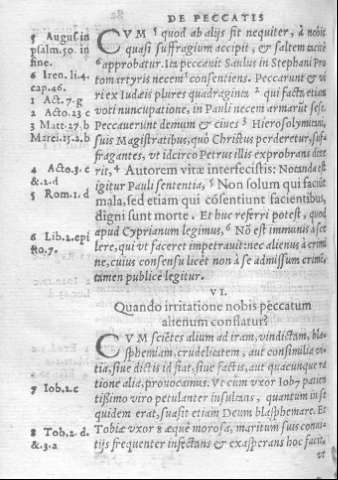 DE PECCATIS
5 August. in
psalm. 50. in
fine.
6 Iren. li. 4.
cap. 46.
1 Act. 7. g
2 Acto. 23 c
3 Matt. 27. b
Marci. 15. a. b
4 Acto. 3. c
&. 2. d
5 Rom. 1. d
6 Lib. 2. epi
sto. 7.
CVM ⁵ quod ab alijs fit nequiter, à nobis
quasi suffragium accipit, & saltem tacitè
⁶ approbatur. Ita peccauit Saulus in Stephani Pro
tomartyris necem ¹ consentiens. Peccarunt & vi
ri ex Iudæis plures quadraginta ² qui facta etiam
voti nuncupatione, in Pauli necem armarūt sese.
Peccauerunt demum & ciues ³ Hierosolymitani,
suis Magistratibus, quò Christus perderetur, suffra
fragantes, vt idcirco Petrus illis exprobrans dixe
rit, ⁴ Autorem vitæ interfecistis: Notanda est
igitur Pauli sententia, ⁵ Non solum qui faciūt
mala, sed etiam qui cōsentiunt facientibus,
digni sunt morte. Et huc referri potest, quod
apud Cyprianum legimus, ⁶ Nō est immunis à sce
lere, qui vt faceret impetrauit: nec alienus à crimi
ne, cuius consensu licèt non à se admissum crimen,
tamen publicè legitur.
VI.
Quando irritatione nobis peccatum
alienum conflatur?
CVM sciētes alium ad iram, vindictam, bla-
sphemiam, crudelitatem, aut consimilia vi-
tia, siue dictis id fiat, siue factis, aut quacunque ra
tione alia, prouocamus. Vt cùm vxor Iob 7 patien
tißimo viro petulanter insultans, quantum in se
quidem erat, suasit etiam Deum blasphemare. Et
Tobiæ vxor 8 æquè morosa, maritum suis conui-
tijs frequenter infectans & exasperans hoc facit,
7 Iob. 2. c
8 Tob. 2. d.
&. 3. a